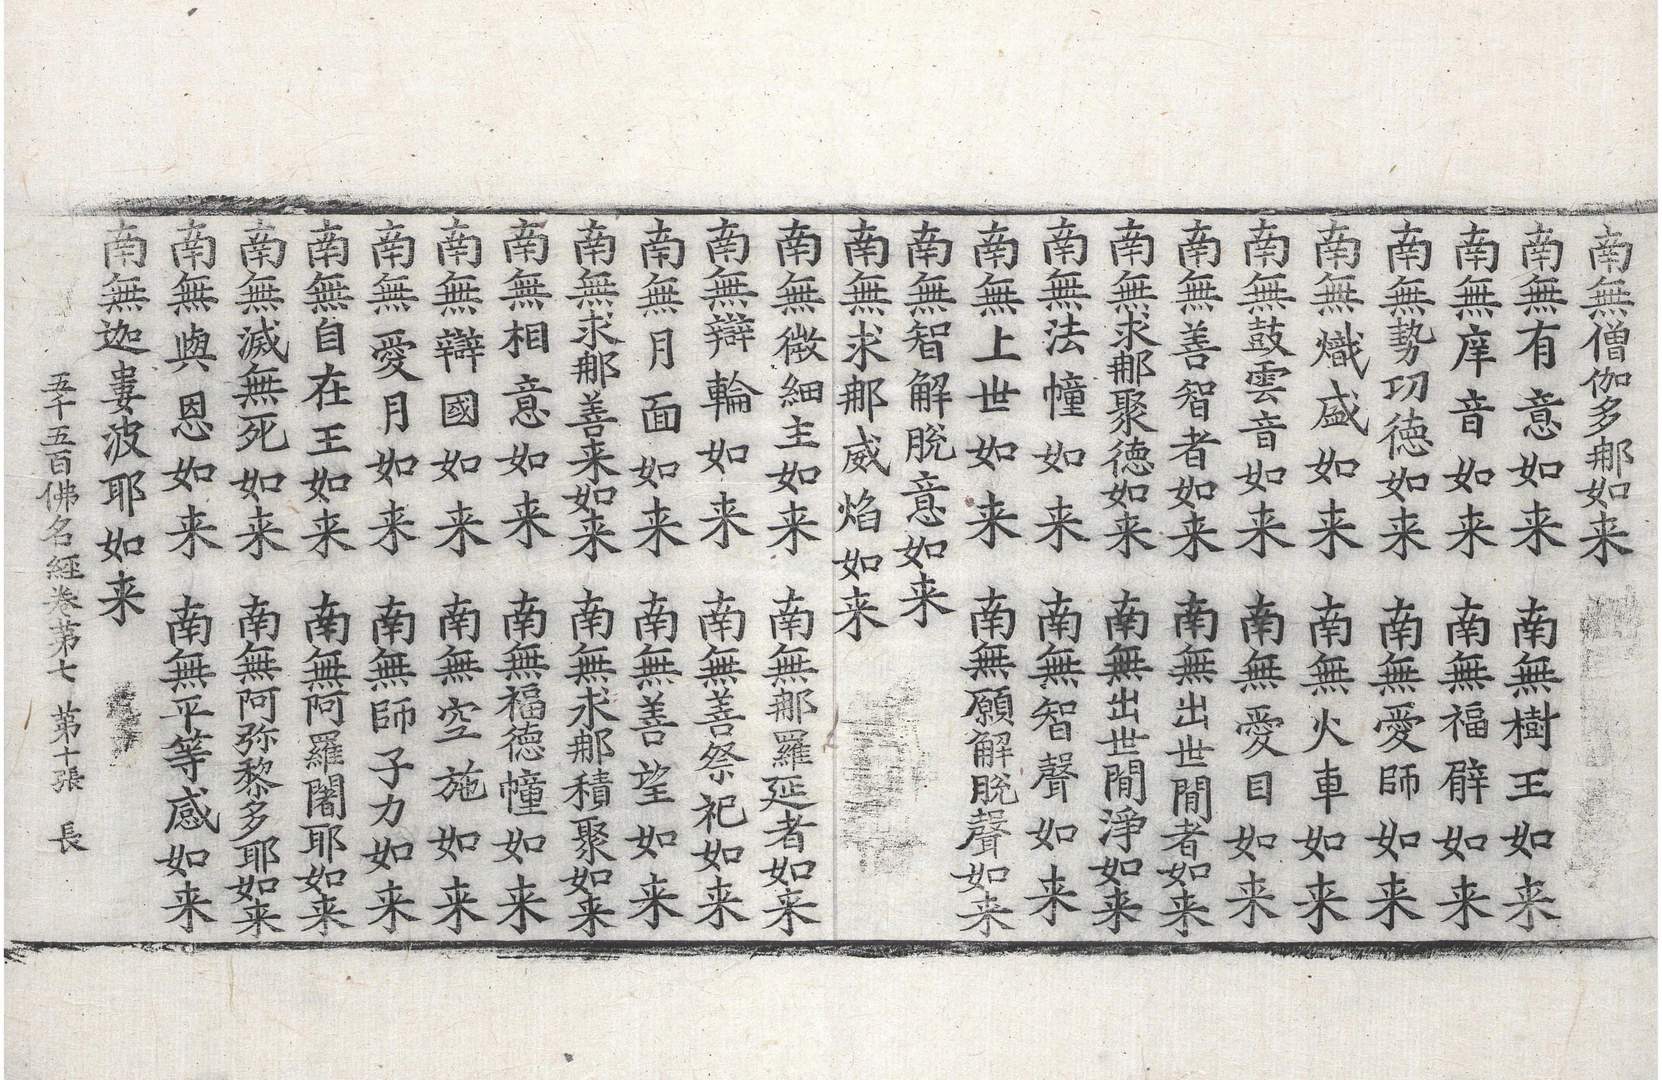 南無僧伽多那如来
南無有意如来 南無樹王如来
南無庠音如来 南無福臂如来
南無勢功徳如来 南無愛師如来
南無熾盛如来 南無火車如来
南無鼓雲音如来 南無愛目如来
南無善智者如来 南無出世閒者如来
南無求那聚德如来 南無出世閒淨如来
南無法幢如来 南無智聲如来
南無上世如来 南無願解脫聲如来
南無智解脫意如来
南無求那威焰如来
南無微細主如来 南無那羅延者如来
南無辯輪如来 南無善祭祀如来
南無月面如来 南無善望如来
南無求那善来如来 南無求那積聚如来
南無相意如来 南無福德幢如来
南無辯國如来 南無空施如来
南無愛月如来 南無師子力如来
南無自在王如来 南無阿羅闍耶如来
南無滅無死如来 南無阿弥黎多耶如来
南無與恩如来 南無平等感如来
南無迦婁波耶如来
五千五百佛名經卷苐七 苐十張 長